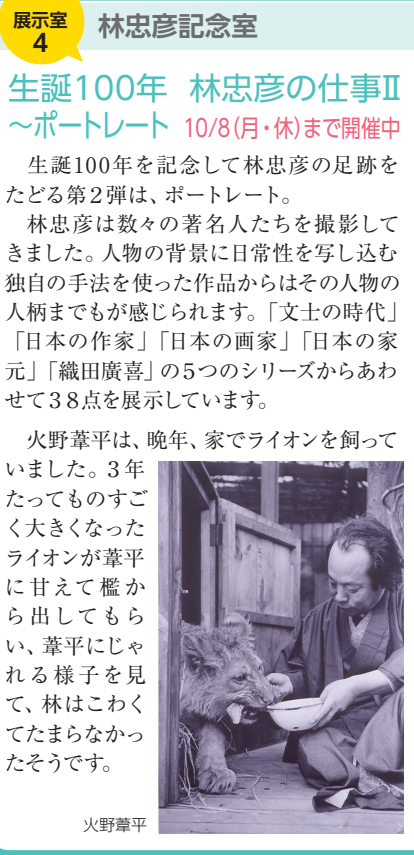 展示室
4
林忠彦記念室
生誕100年 林忠彦の仕事Ⅱ
～ポートレート 10/8(月・休)まで開催中
生誕100年を記念して林忠彦の足跡を
たどる第２弾は、ポートレート。
林忠彦は数々の著名人たちを撮影して
きました。人物の背景に日常性を写し込む
独自の手法を使った作品からはその人物の
人柄までもが感じられます。「文士の時代」
「日本の作家」「日本の画家」「日本の家
元」「織田廣喜」の５つのシリーズからあわ
せて３８点を展示しています。
火野葦平は、晩年、家でライオンを飼って
いました。３年
たってものすご
く大きくなった
ライオンが葦平
に甘えて檻か
ら出してもら
い、葦平にじゃ
れる様子を見
て、林はこわく
てたまらなかっ
たそうです。
火野葦平